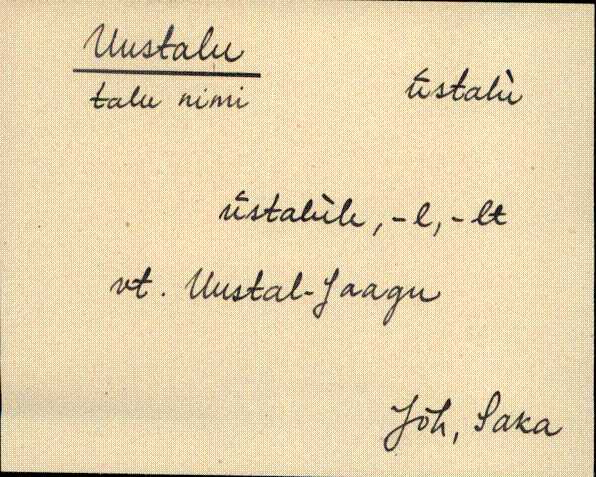 Uustalu
talu nimi
ūstalù
ūstalùle, -l, -lt
vt. Uustal-Jaagu
Jõh, Saka